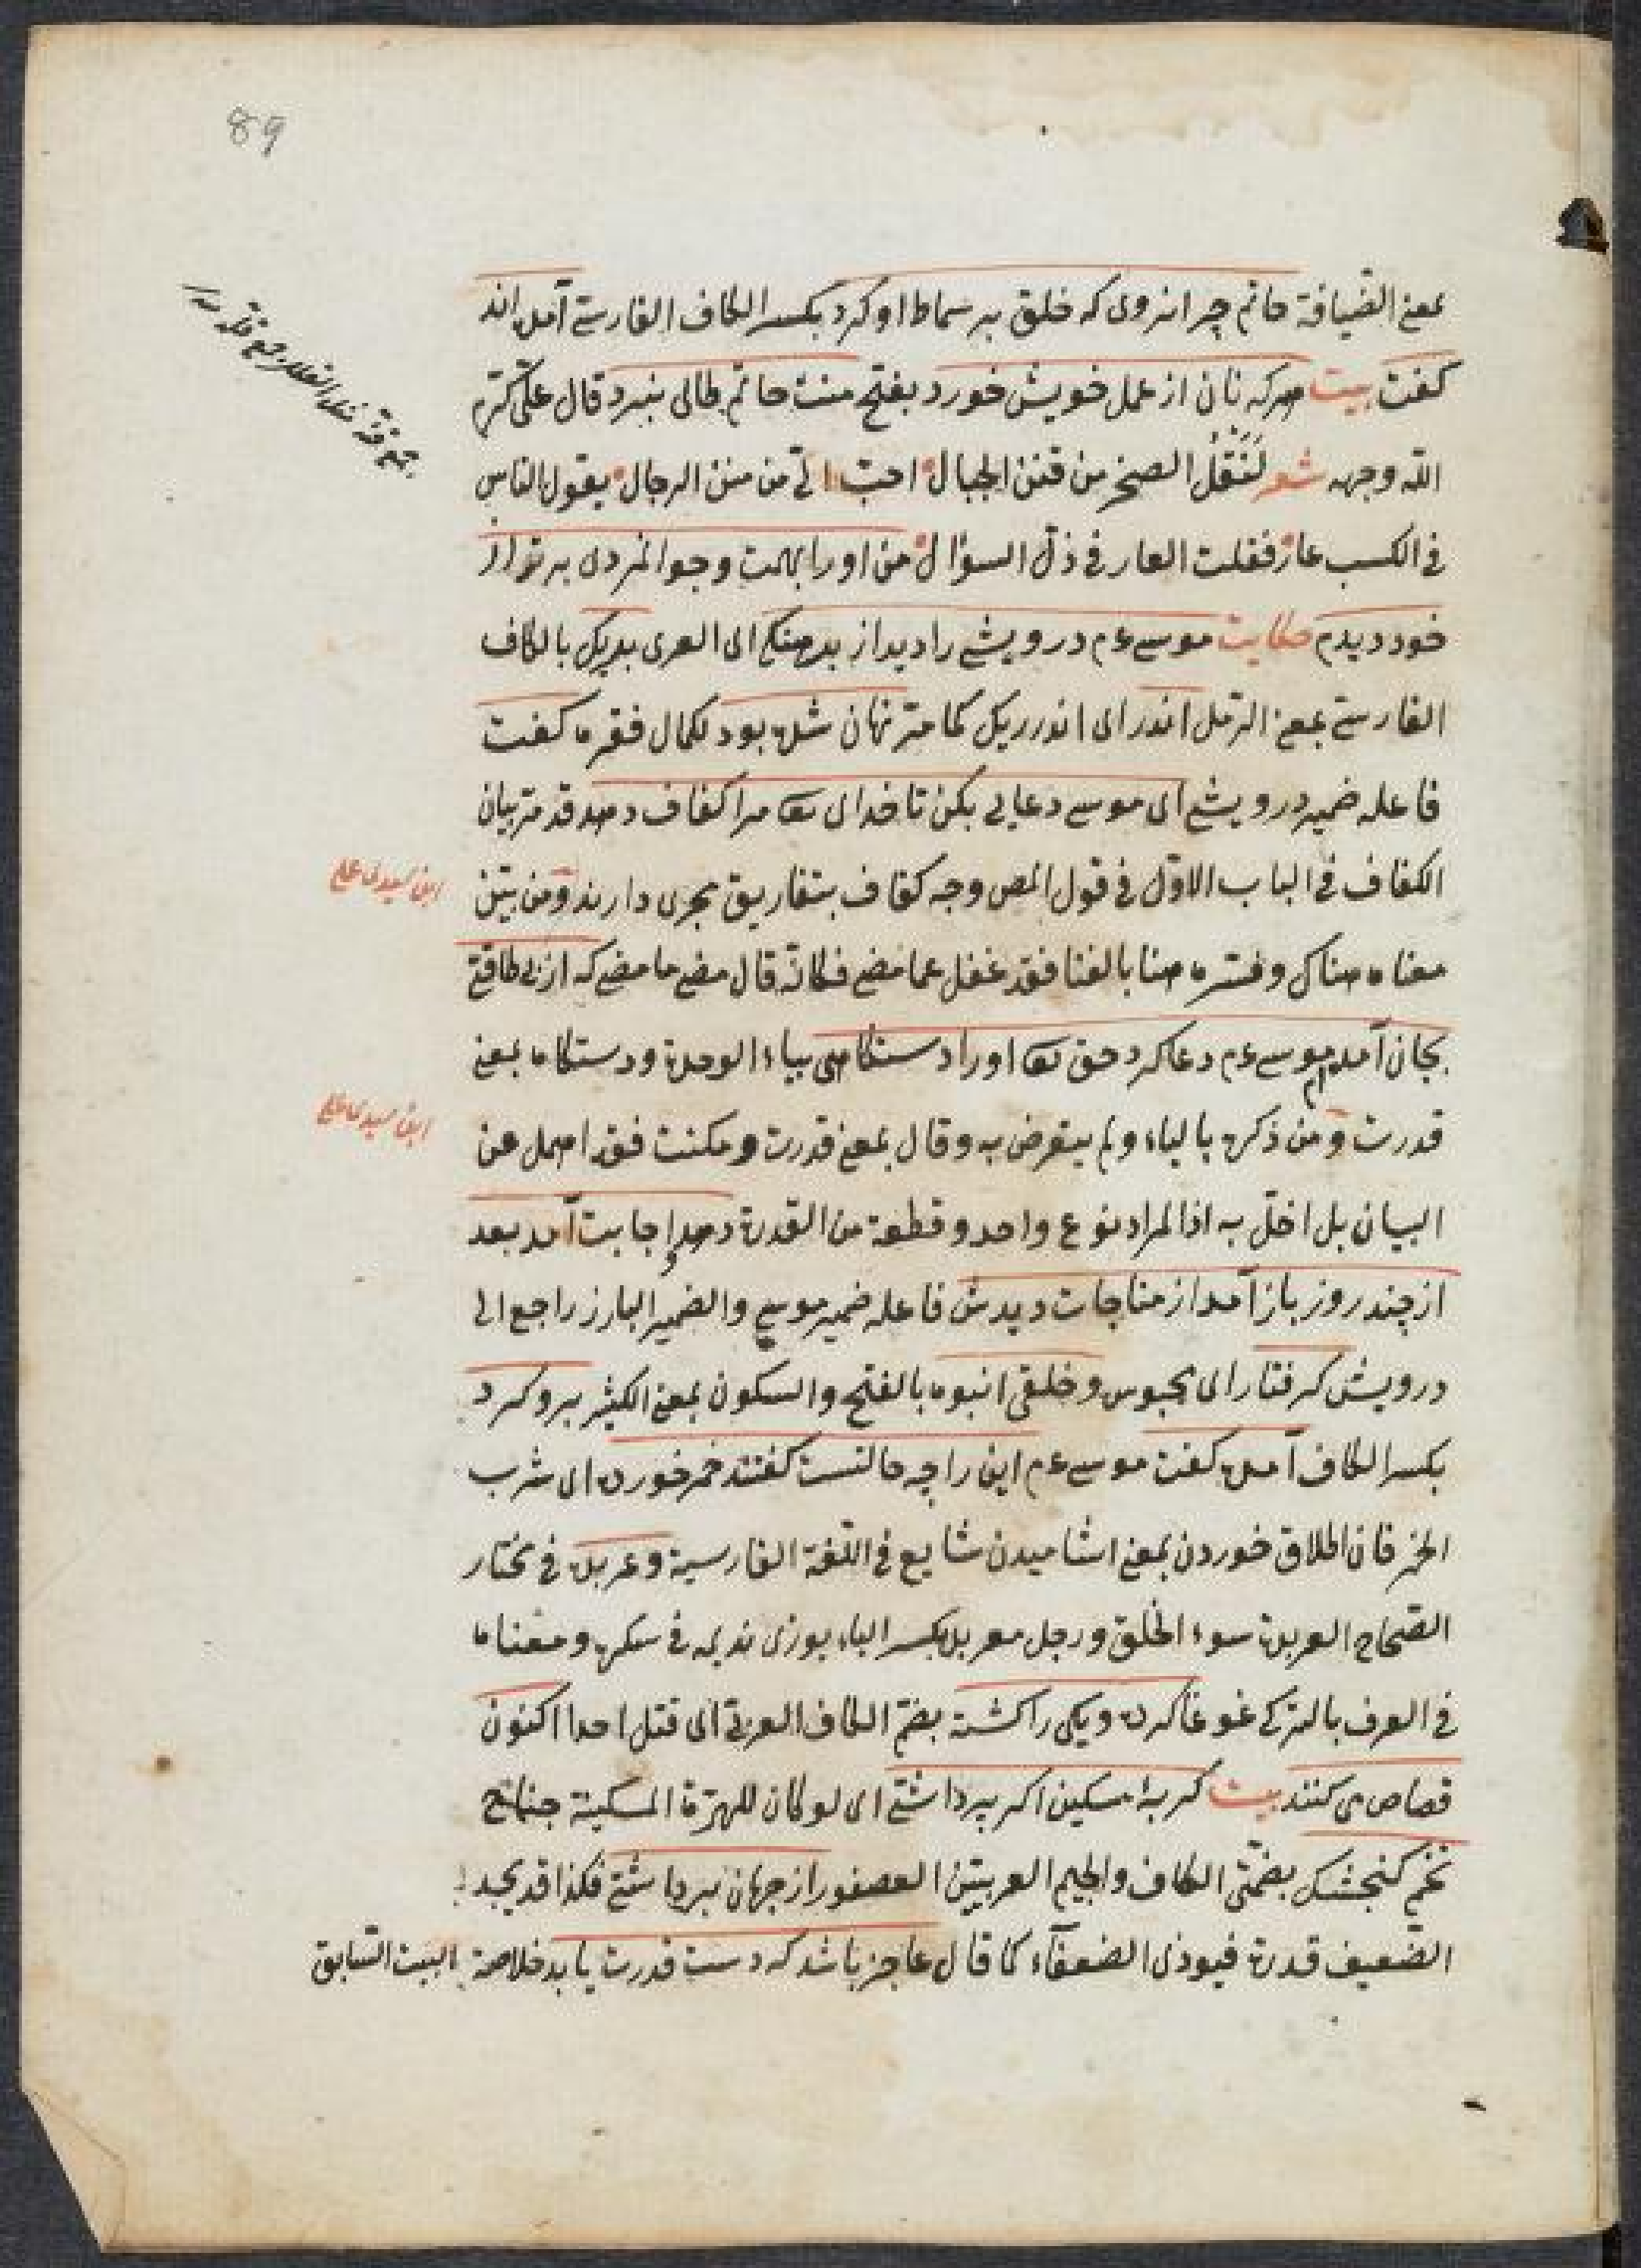 89
بمعنى الضيافة حاتم چرا نروى كه خلق بر سماط او كرد بكسر الكاف الفارسى آمده اند
كفت بيت هر كه نان از عمل خويش خورد بفتح منت حاتم طائى نبرد قال على كرم
الله وجهه شعر لَنَقْلُ الصخر من قنن الجبال احب الى من منن الرجال يقول الناس
فى الكسب عار فقلت العار فى ذل السؤال من او را بهمت وجوانمردى برتر از
خود ديدم حكايت موسى عم درويشى را ديد از برهنكى اى العرى بريك بالكاف
الفارسى بمعنى الرمل اندر اى اندر ريك كما مر نهان شده بود لكمال فقره كفت
فاعله ضمير درويش اى موسى دعايى بكن تا خداى تعا مرا كفاف دهد قد مر بيان
الكفاف فى الباب الاول فى قول المص وجه كفاف بتفاريق مجرى دارند ومن بين
ابن سيدى على
معناه هناك وفسره هنا بالغنا فقد غفل عما مضى فكانه قال مضى ما مضى كه از بى طاقتى
بجان آمدم موسى عم دعا كرد حق تعا او را دستكاهى بياء الوحدة ودستكاه بمعنى
قدرت ومن ذكره بالياء ولم يتعرض به وقال بمعنى قدرت ومكنت فقد اهمل عن
ابن سيدى على
البيان بل اخل به اذ المراد نوع واحد وقطعة من القدرة دهد اجابت آمد بعد
از چند روز باز آمد از مناجات ديدش فاعله ضمير موسى والضمير البارز راجع الى
درويش كرفتار اى محبوس وخلقى انبوه بالفتح والسكون بمعنى الكثير برو كرد
بكسر الكاف آمده كفت موسى عم اين را چه حالتست كفتند خمر خورده اى شرب
الخمر فان اطلاق خوردن بمعنى اشاميدن شايع فى اللغة الفارسية وعربده فى مختار
الصحاح العربدة سوء الخلق ورجل معربد بكسر الباء يوزى نديمه فى سكره ومعناه
فى العرف بالتركى غوغا كرده ويكى را كشته بضم الكاف العربى اى قتل احدا اكنون
قصاص مى كنند بيت كربۀ مسكين اكر پر داشتى اى لو كان للهرة المسكينة جناح
تخم كنجشك بضمتى الكاف والجيم العربيتين العصفور از جهان برداشتى فكذا قد يجد
الضعيف قدرة فيوذى الضعفآء كما قال عاجز باشد كه دست قدرت يابد خلاصة البيت السابق